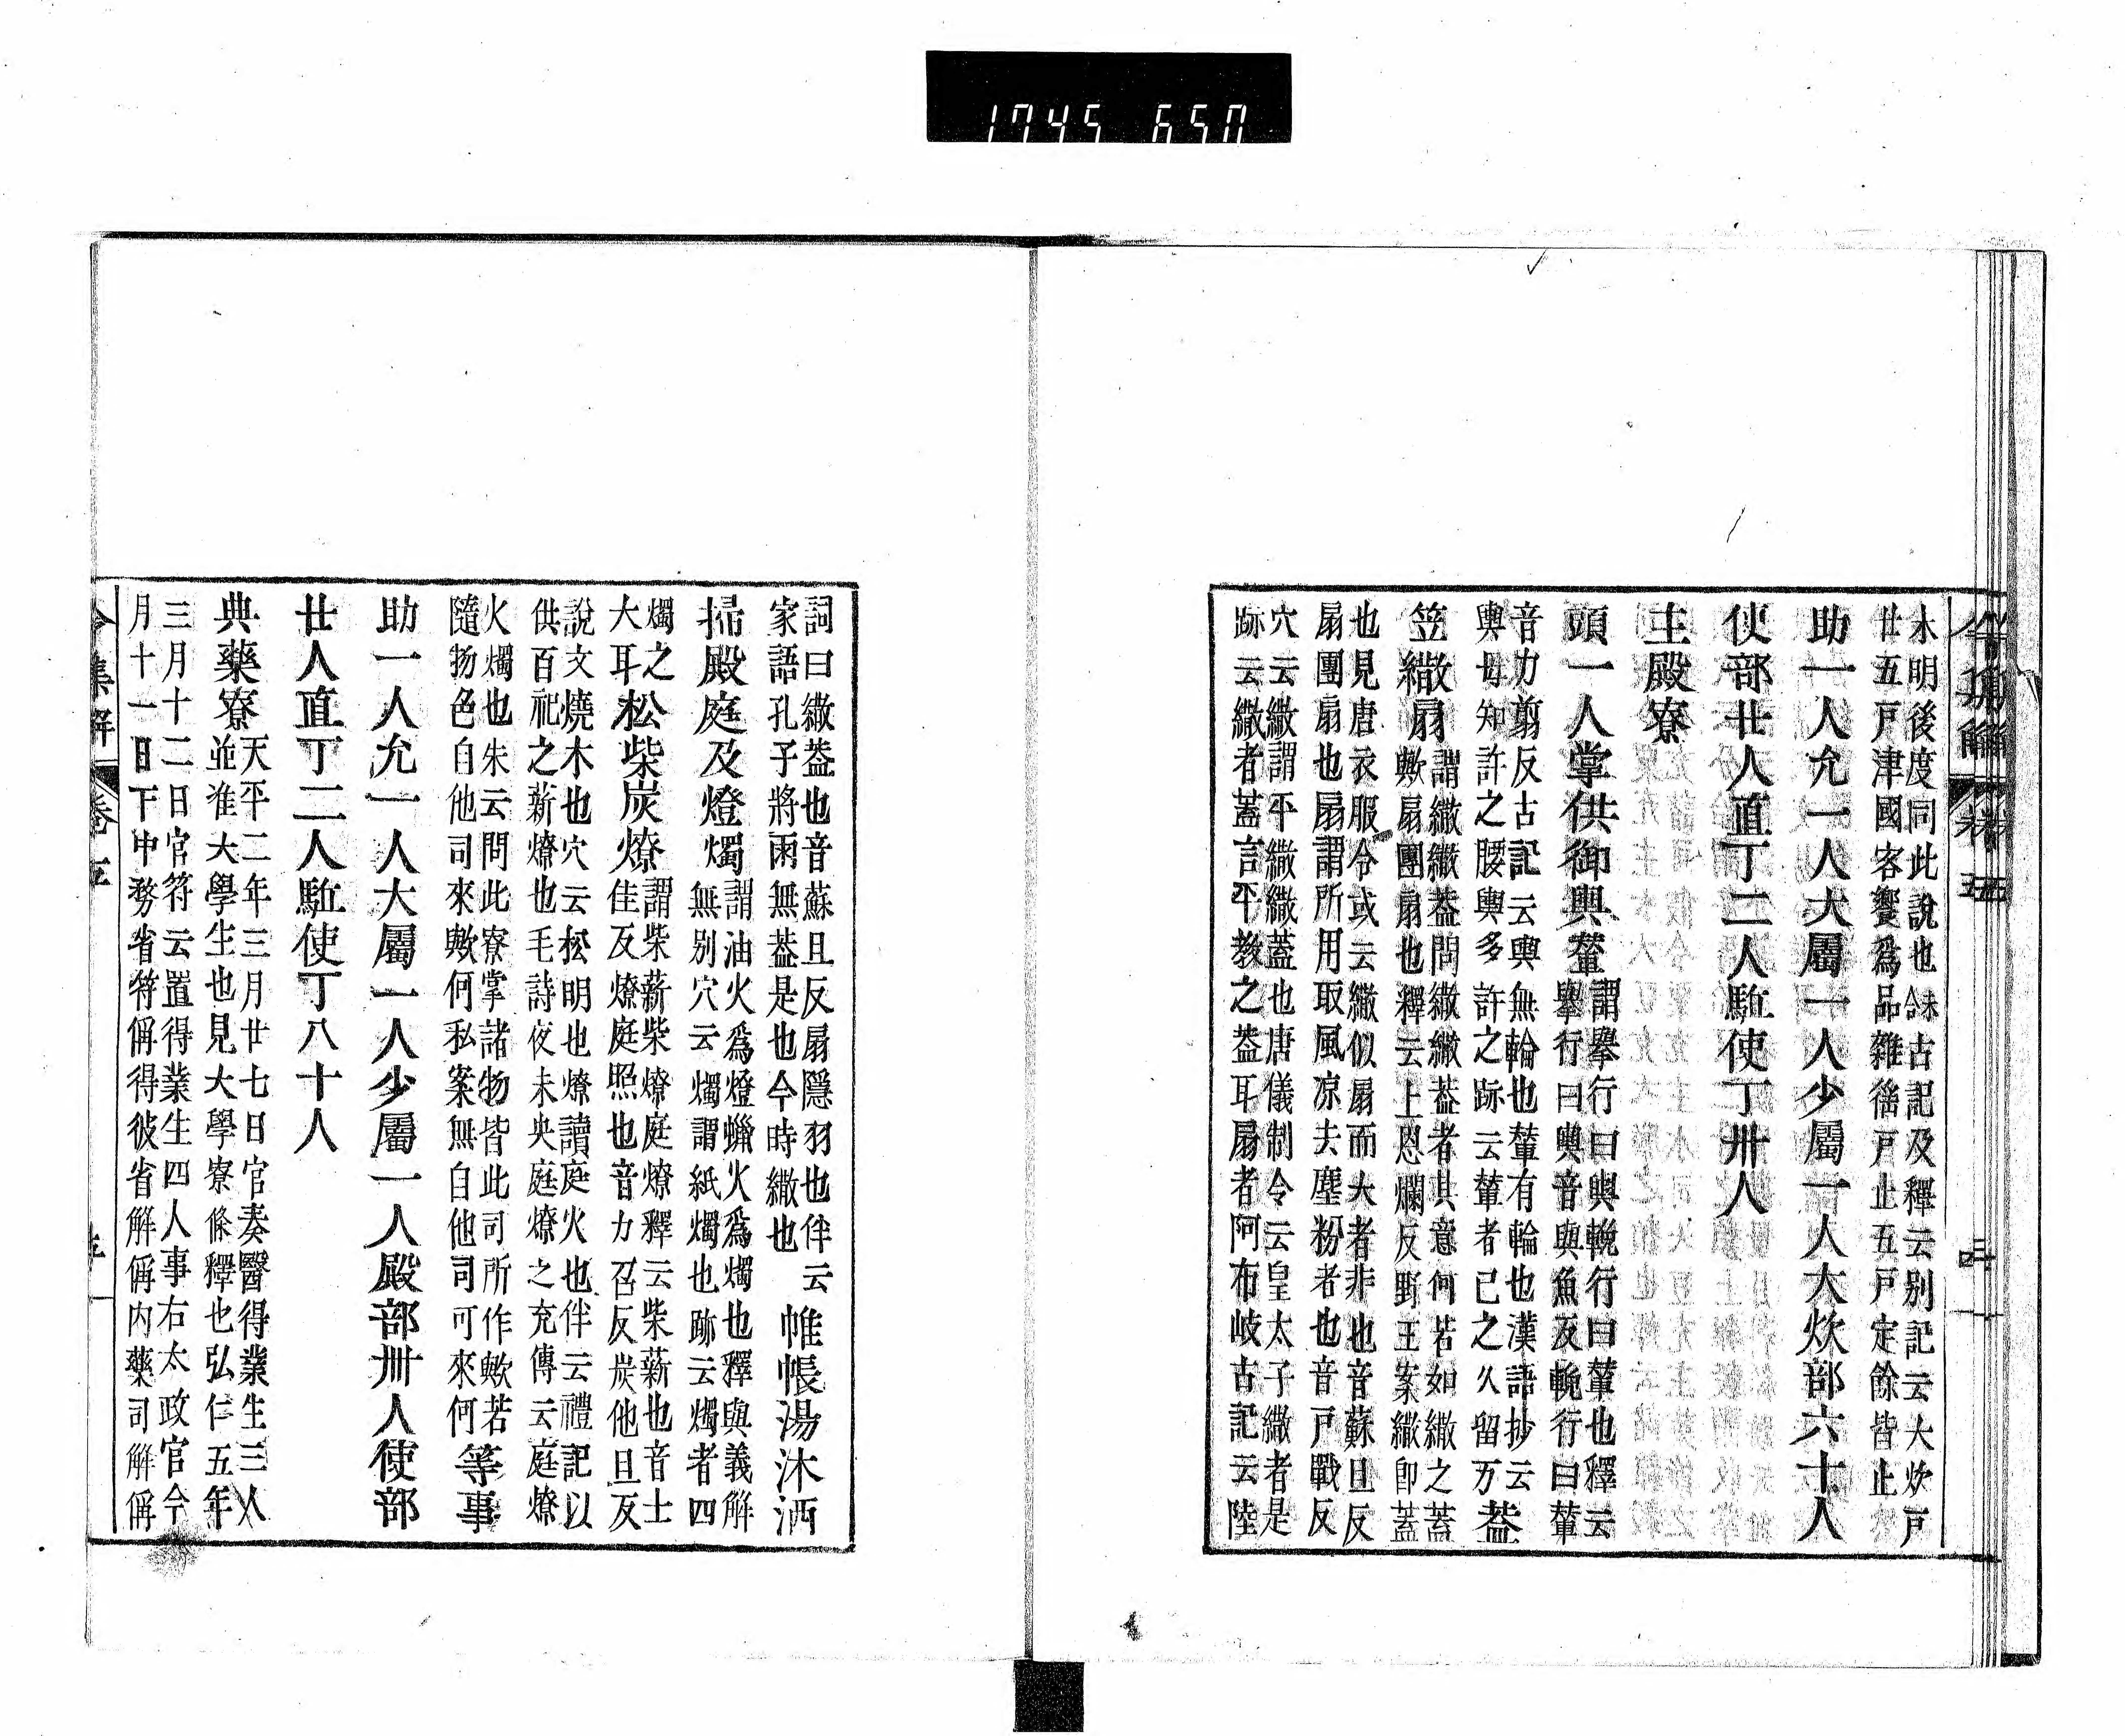 1745 650
令集解
卷五
未明後度同此說也未古記及釋云別記云大炊戸
廿五戸津國客饗爲品雜徭戸止五戸定餘皆止
助一人允一人大屬一人少屬一人大炊部六十人
使部廿人直丁二人駈使丁卅人
主殿寮
頭一人掌供御輿輦
謂擧行曰輿輓行曰輦也釋云
擧行曰輿音與魚反輓行曰輦
音力剪反古記云輿無輪也輦有輪也漢語抄云
輿母知許之腰輿多許之跡云輦者己之久留万
蓋
笠繖扇
謂繖繖蓋問繖繖蓋者其意何若如繖之蓋
歟扇團扇也釋云上恩爛反野王案繖卽蓋
也見唐衣服令或云繖似扇而大者非也音蘇旦反
扇團扇也扇謂所用取風凉去塵粉者也音戸戰反
穴云繖謂平繖繖蓋也唐儀制令云皇太子繖者是
跡云繖者蓋言平敎之蓋耳扇者阿布岐古記云陸
詞曰繖蓋也音蘇且反扇隱羽也伴云
家語孔子將雨無蓋是也今時繖也
帷帳湯沐洒
掃殿庭及燈燭
謂油火爲燈蠟火爲燭也釋與義解
無別穴云燭謂紙燭也跡云燭者四
燭之
大耳
松柴炭燎
謂柴薪柴燎庭燎釋云柴薪也音士
佳反燎庭照也音力召反炭他旦反
說文燒木也穴云松明也燎讀庭火也伴云禮記以
供百祀之薪燎也毛詩夜未央庭燎之充傳云庭燎
火燭也朱云問此寮掌諸物皆此司所作歟若
隨物色自他司來歟何私案無自他司可來何
等事
助一人允一人大屬一人少屬一人殿部卅人使部
廿人直丁二人駈使丁八十人
典藥寮
天平二年三月廿七日官奏醫得業生三人
並准大學生也見大學寮條釋也弘仁五年
三月十二日官符云置得業生四人事右太政官今
月十一日下中務省符偁得彼省解偁内藥司解偁
令集解
卷五